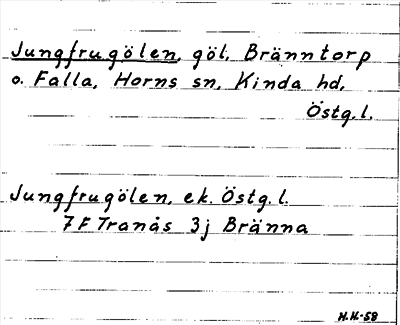 Jungfrugölen, göl, Bränntorp
o. Falla, Horns sn, Kinda hd,
Östg.l.
Jungfrugölen, ek. Östg.l.
7F Tranås 3j Bränna
H.H.-58